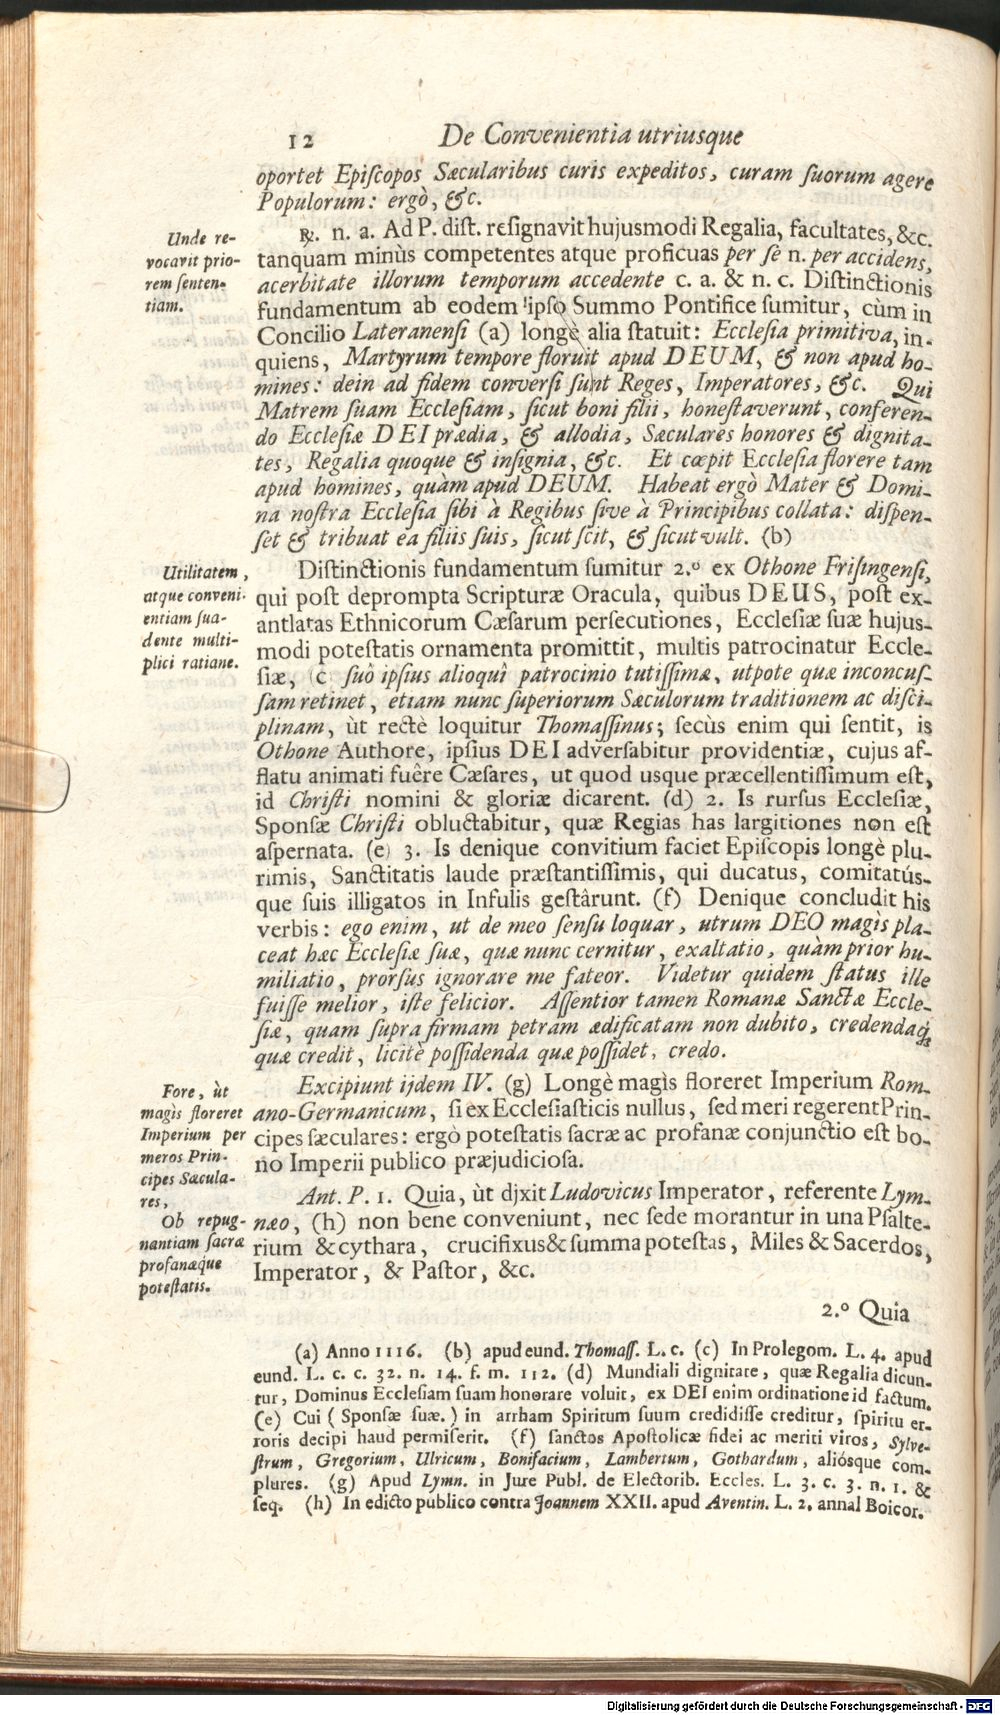 12 De Convenientia utriusque
oportet Episcopos Sæcularibus curis expeditos, curam suorum agere
Populorum: ergò, &c.
Unde re-
vocavit prio-
rem senten-
tiam.
℟. n. a. Ad P. dist. resignavit hujusmodi Regalia, facultates, &c.
tanquam minùs competentes atque proficuas per se n. per accidens,
acerbitate illorum temporum accedente c. a. & n. c. Distinctionis
fundamentum ab eodem ipso Summo Pontifice sumitur, cùm in
Concilio Lateranensi (a) longè alia statuit: Ecclesia primitiva, in-
quiens, Martyrum tempore floruit apud DEUM, & non apud ho-
mines: dein ad fidem conversi sunt Reges, Imperatores, &c. Qui
Matrem suam Ecclesiam, sicut boni filii, honestaverunt, conferen-
do Ecclesiæ DEI prædia, & allodia, Sæculares honores & dignita-
tes, Regalia quoque & insignia, &c. Et cæpit Ecclesia florere tam
apud homines, quàm apud DEUM. Habeat ergò Mater & Domi-
na nostra Ecclesia sibi à Regibus sive à Principibus collata: dispen-
set & tribuat ea filiis suis, sicut scit, & sicut vult. (b)
Utilitatem,
atque conveni-
entiam sua-
dente multi-
plici ratiane.
Distinctionis fundamentum sumitur 2.º ex Othone Frisingensi,
qui post deprompta Scripturæ Oracula, quibus DEUS, post ex-
antlatas Ethnicorum Cæsarum persecutiones, Ecclesiæ suæ hujus-
modi potestatis ornamenta promittit, multis patrocinatur Eccle-
siæ, (c suô ipsius alioquî patrocinio tutissimæ, utpote quæ inconcus-
sam retinet, etiam nunc superiorum Sæculorum traditionem ac disci-
plinam, ùt rectè loquitur Thomassinus; secùs enim qui sentit, is
Othone Authore, ipsius DEI adversabitur providentiæ, cujus af-
flatu animati fuêre Cæsares, ut quod usque præcellentissimum est,
id Christi nomini & gloriæ dicarent. (d) 2. Is rursus Ecclesiæ,
Sponsæ Christi obluctabitur, quæ Regias has largitiones non est
aspernata. (e) 3. Is denique convitium faciet Episcopis longè plu-
rimis, Sanctitatis laude præstantissimis, qui ducatus, comitatús-
que suis illigatos in Infulis gestârunt. (f) Denique concludit his
verbis: ego enim, ut de meo sensu loquar, utrum DEO magìs pla-
ceat hæc Ecclesiæ suæ, quæ nunc cernitur, exaltatio, quàm prior hu-
miliatio, prorsus ignorare me fateor. Videtur quidem status ille
fuisse melior, iste felicior. Assentior tamen Romanæ Sanctæ Eccle-
siæ, quam supra firmam petram ædificatam non dubito, credendaq́;
quæ credit, licitè possidenda quæ possidet, credo.
Fore, ùt
magìs floreret
Imperium per
meros Prin-
cipes Sæcula-
res,
Excipiunt ijdem IV. (g) Longè magìs floreret Imperium Rom-
ano-Germanicum, si ex Ecclesiasticis nullus, sed meri regerent Prin-
cipes sæculares: ergò potestatis sacræ ac profanæ conjunctio est bo-
no Imperii publico præjudiciosa.
Ob repug-
nantiam sacræ
profanæque
potestatis.
Ant. P. 1. Quia, ùt djxit Ludovicus Imperator, referente Lym-
næo, (h) non bene conveniunt, nec sede morantur in una Psalte-
rium & cythara, crucifixus & summa potestas, Miles & Sacerdos,
Imperator, & Pastor, &c.
2.º Quia
(a) Anno 1116. (b) apud eund. Thomass. L. c. (c) In Prolegom. L. 4. apud
eund. L. c. c. 32. n. 14. f. m. 112. (d) Mundiali dignitate, quæ Regalia dicun-
tur, Dominus Ecclesiam suam honorare voluit, ex DEI enim ordinatione id factum.
(e) Cui (Sponsæ suæ.) in arrham Spiritum suum credidisse creditur, spiritu er-
roris decipi haud permiserit. (f) sanctos Apostolicæ fidei ac meriti viros, Sylve-
strum, Gregorium, Ulricum, Bonifacium, Lambertum, Gothardum, aliósque com-
plures. (g) Apud Lymn. in Jure Publ. de Electorib. Eccles. L. 3. c. 3. n. 1. &
seq. (h) In edicto publico contra Joannem XXII. apud Aventin. L. 2. annal Boicor.
Digitalisierung gefördert durch die Deutsche Forschungsgemeinschaft - DFG